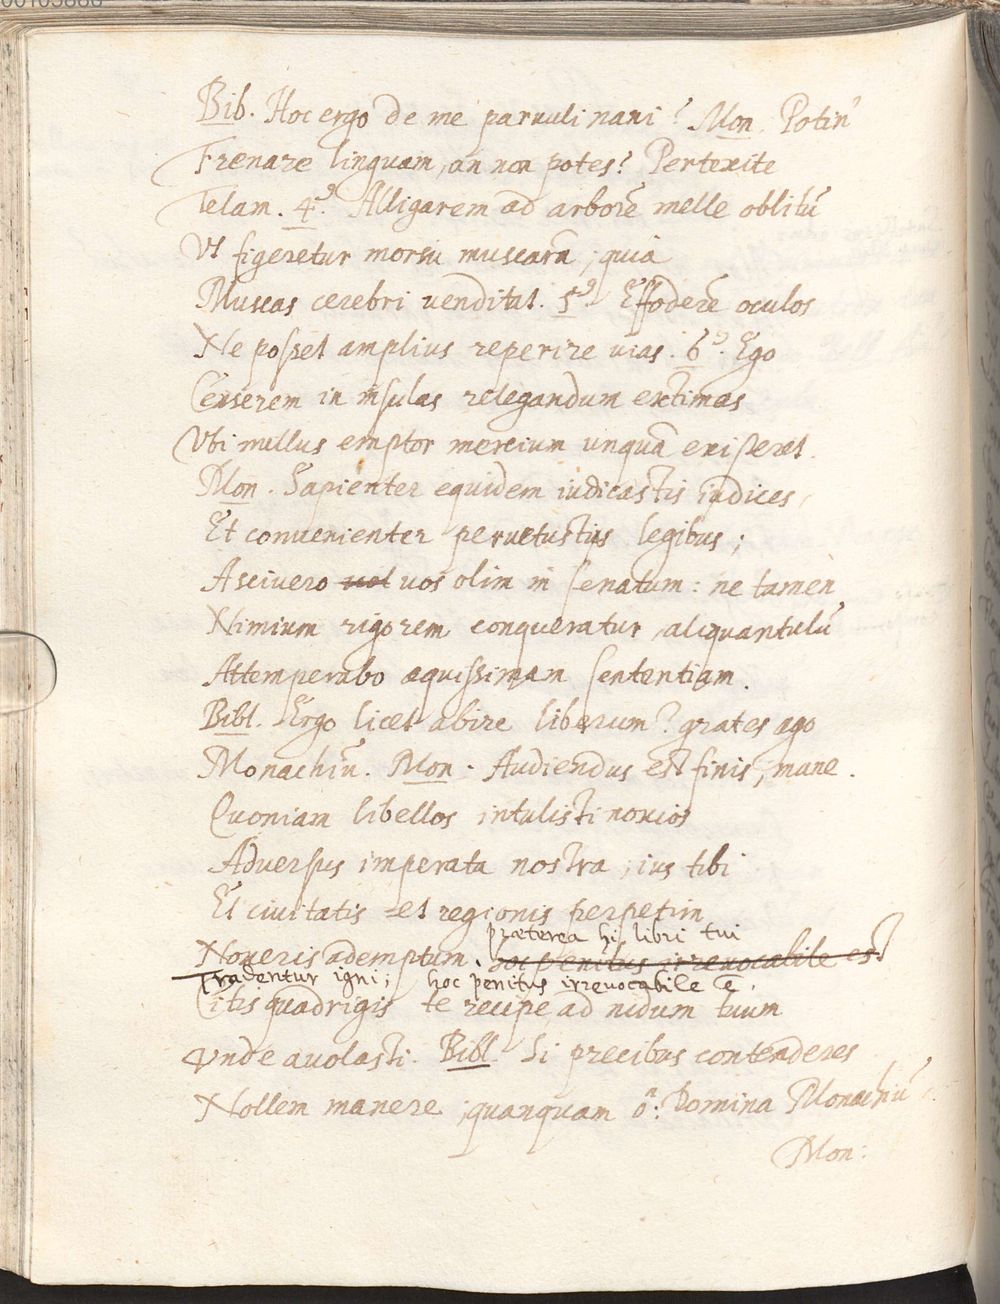 Bib. Hoc ergo de me parvuli nani? Mon. Potin'
Frenare linguam, an non potes? Pertexite
Telam. 4.9 Alligarem ad arborē melle oblitū
Vt figeretur morsu muscarū; quia
Muscas cerebri venditat. 5.9 Effoderē oculos
Ne posset amplius reperire vias. 6.9 Ego
Censerem in insulas relegandum extimas
Vbi nullus emptor mercium unquā existeret.
Mon. Sapienter equidem iudicastis iudices,
Et convenienter pervetustijs legibus;
Ascivero vos olim in senatum: ne tamen
Nimium rigorem conqueratur, aliquantulū
Attemperabo aequissimam sententiam.
Bibl. Ergo licet abire liberum? grates ago
Monachiū. Mon. Audiendus est finis, mane.
Quoniam libellos intulisti noxios
Adversus imperata nostra; ius tibi
Et civitatis et regionis perpetim
praeterea hi libri tui
Noveris ademptum. hoc penitus irrevocabile est
Tradentur igni; hoc penitus irrevocabile ē.
Citis quadrigis te recipe, ad nidum tuum
Vnde avolasti. Bibl. Si precibus contenderes
Nollem manere; quanquam ô Domina Monachiū
Mon: